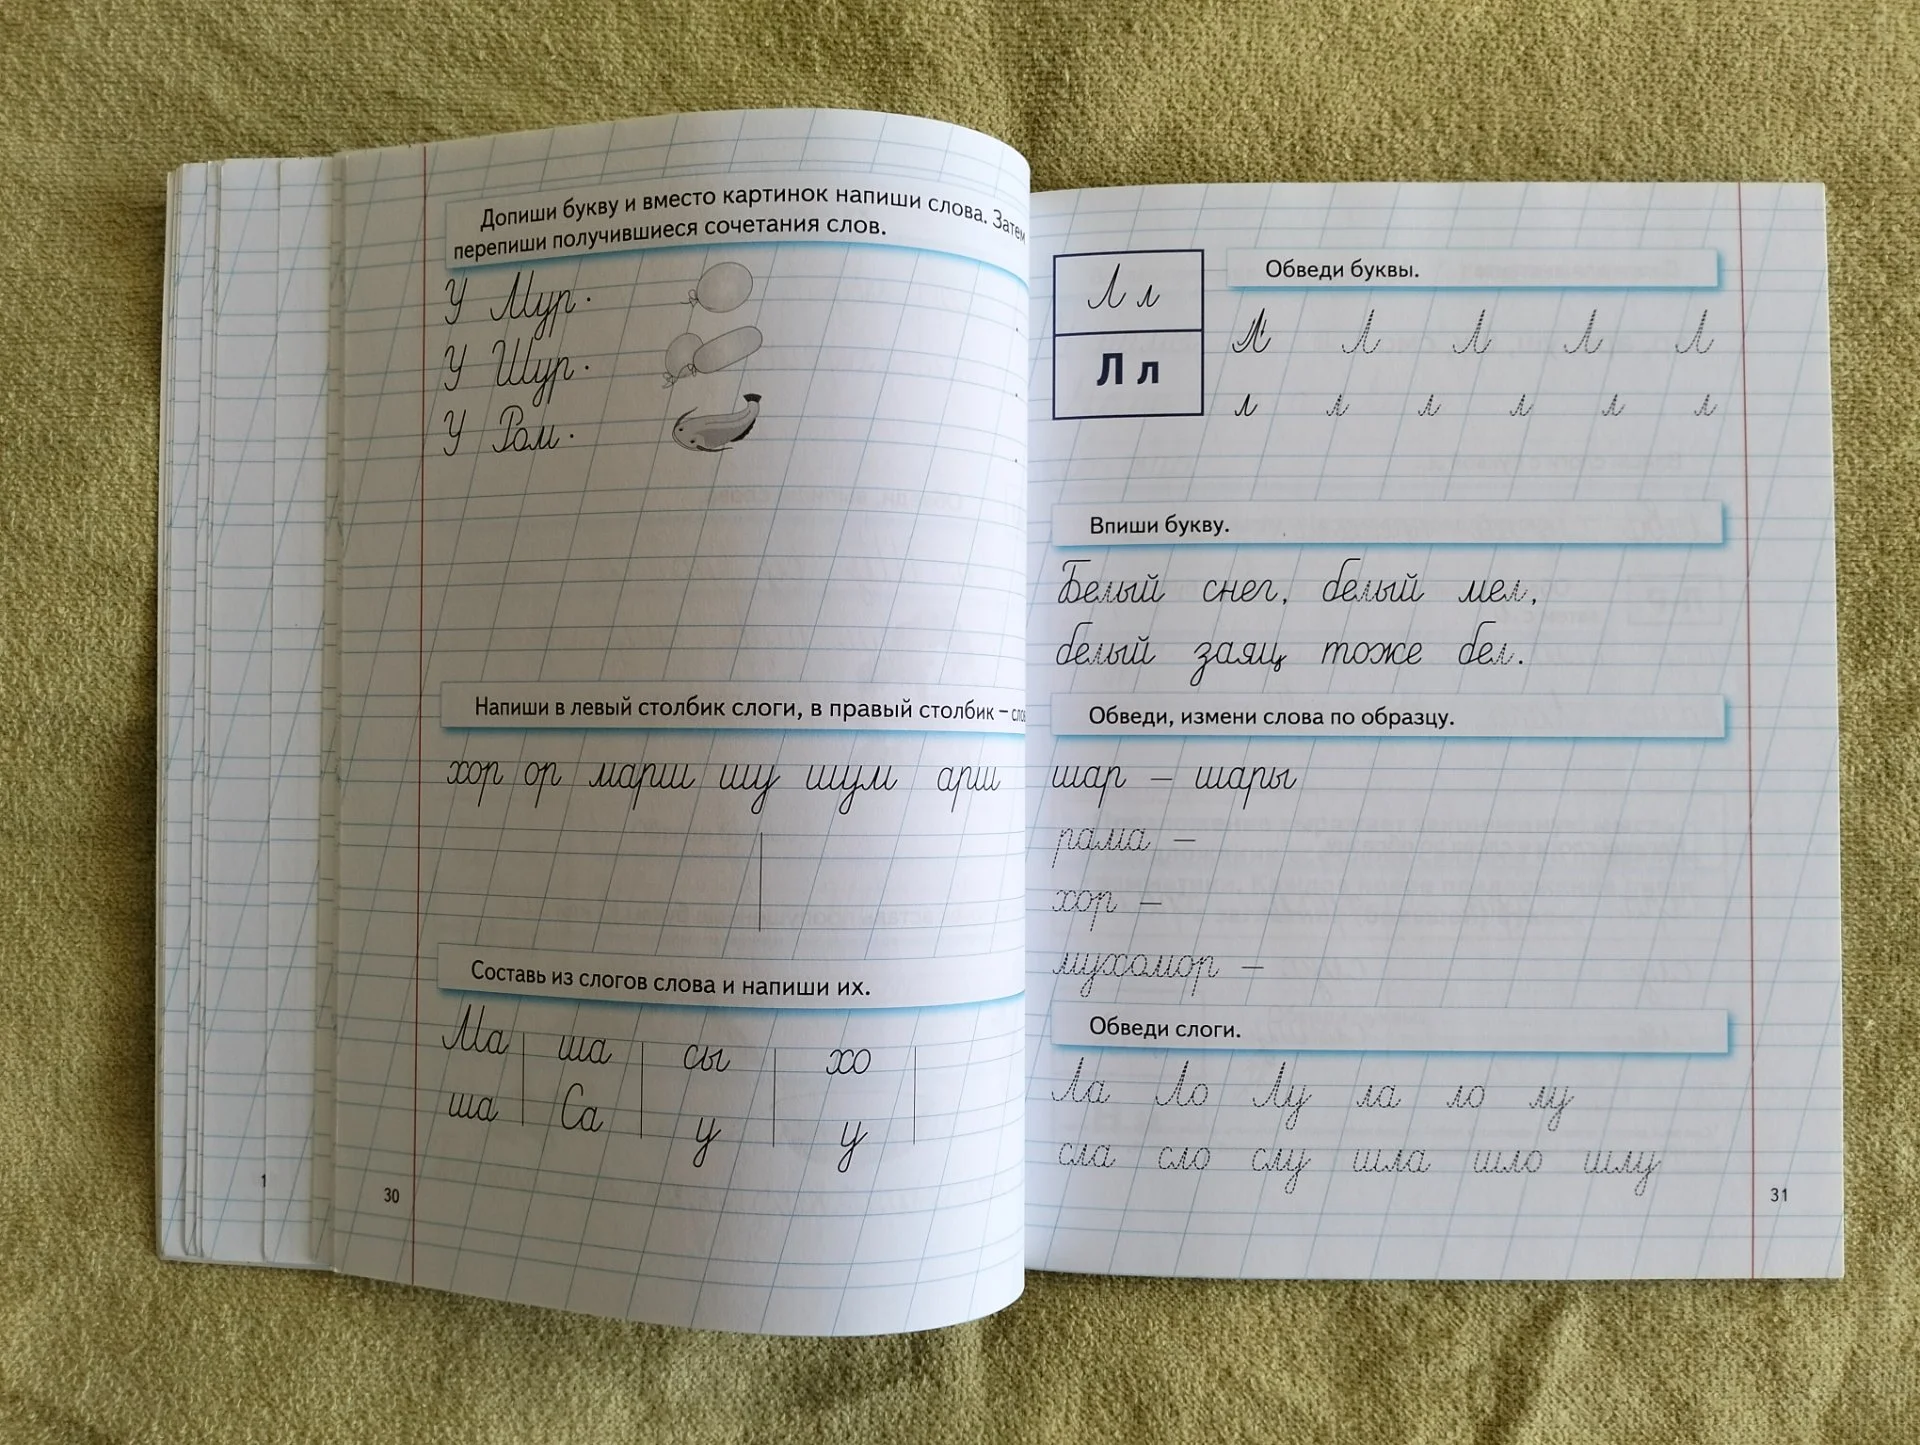 Допиши букву и вместо картинок напиши слова. Затем
перепиши получившиеся сочетания слов.
У Мур.
У Шур.
У Ром.
Напиши в левый столбик слоги, в правый столбик –
хор ор марш шу шум арш
Составь из слогов слова и напиши их.
Ма ша сы хо
ша Са у у
1
30
Л л
Л л
Обведи буквы.
Л Л Л Л Л
л л л л л л
Впиши букву.
Белый снег, белый мел,
белый заяц тоже бел.
Обведи, измени слова по образцу.
шар – шары
рама –
хор –
мухомор –
Обведи слоги.
Ла Ло Лу ла ло лу
сла сло слу шла шло шлу
31